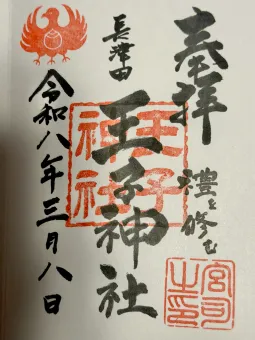 奉拝
禮を修む
長津田
王子神社
王子神社
宮司之印
令和八年三月八日